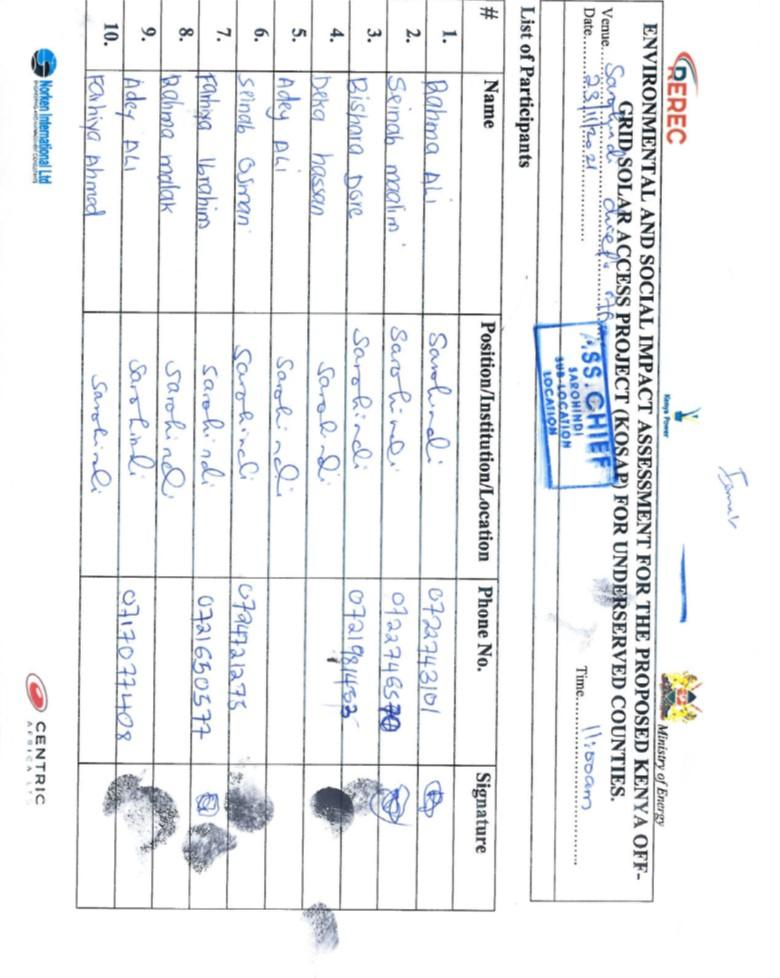 REREC
Kenya Power
Ministry of Energy
ENVIRONMENTAL AND SOCIAL IMPACT ASSESSMENT FOR THE PROPOSED KENYA OFF-
GRID SOLAR ACCESS PROJECT (KOSAP) FOR UNDERSERVED COUNTIES.
Venue... Sarohindi chief's
Date... 23/11/2021 Time... 11:00am
ASS. CHIEF
SAROHINDI
SUB-LOCATION
LOCATION
List of Participants
# Name Position/Institution/Location Phone No. Signature
1. Rahma Ali Sarohindi 0722743101
2. Seinab maalim Sarohindi
3. Bishara Dore Sarohindi
4. Deka hassan Sarohindi
5. Adey ALi Sarohindi
6. Seinab Osman Sarohindi 0724721275
7. Fahiya Ibrahim Sarohindi 0721650577
8. Rahma malak Sarohindi
9. Adey ALi Sarohindi 0717077408
10. Farhiya Ahmed Sarohindi
Norken International Ltd
CENTRIC
AFRICA LTD